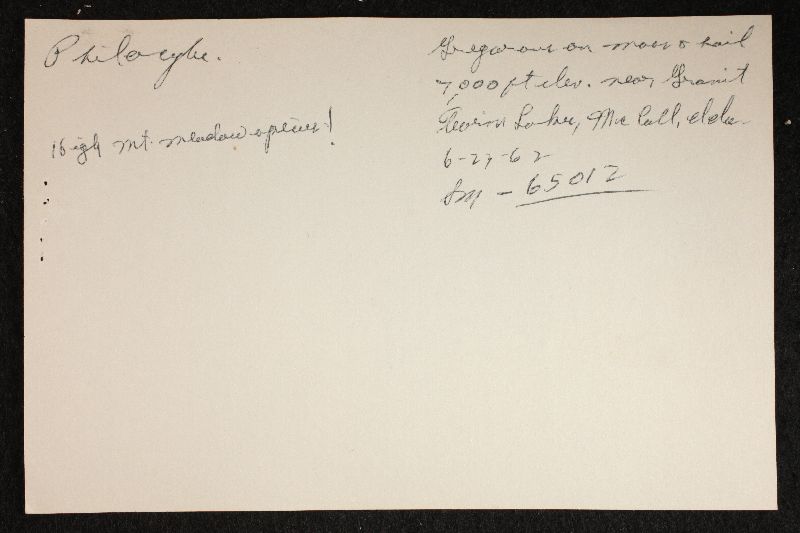 Philocybe.
High mt. meadow species!
Gregarious on moss & soil
7,000 ft elev. near Granit
Twin Lake, Mc Call, Ida.
6-27-62
Sm - 65012